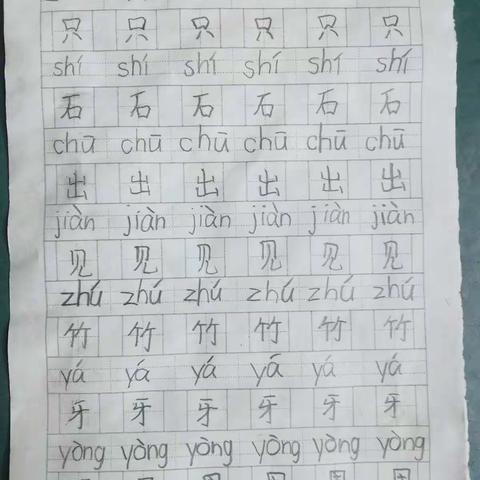 只 只 只 只 只 只
shí shí shí shí shí shí
石 石 石 石 石 石
chū chū chū chū chū chū
出 出 出 出 出 出
jiàn jiàn jiàn jiàn jiàn jiàn
见 见 见 见 见 见
zhú zhú zhú zhú zhú zhú
竹 竹 竹 竹 竹 竹
yá yá yá yá yá yá
牙 牙 牙 牙 牙 牙
yòng yòng yòng yòng yòng yòng